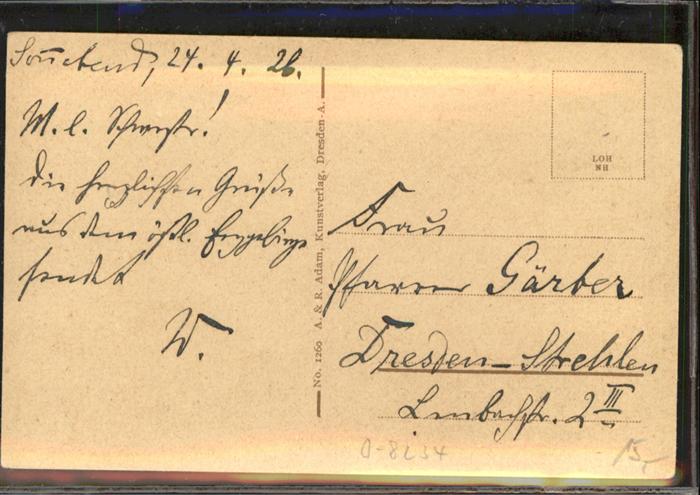 Sonnabend, 24. 4. 26.
M. l. Schwester!
Die herzlichsten Grüße
aus dem östl. Erzgebirge
sendet
W.
No. 1260 A. & R. Adam, Kunstverlag, Dresden-A.
LOH
NH
Frau
Pfarrer Gärber
Dresden-Strehlen
Lenbachstr. 2 III
0-8234
15,-